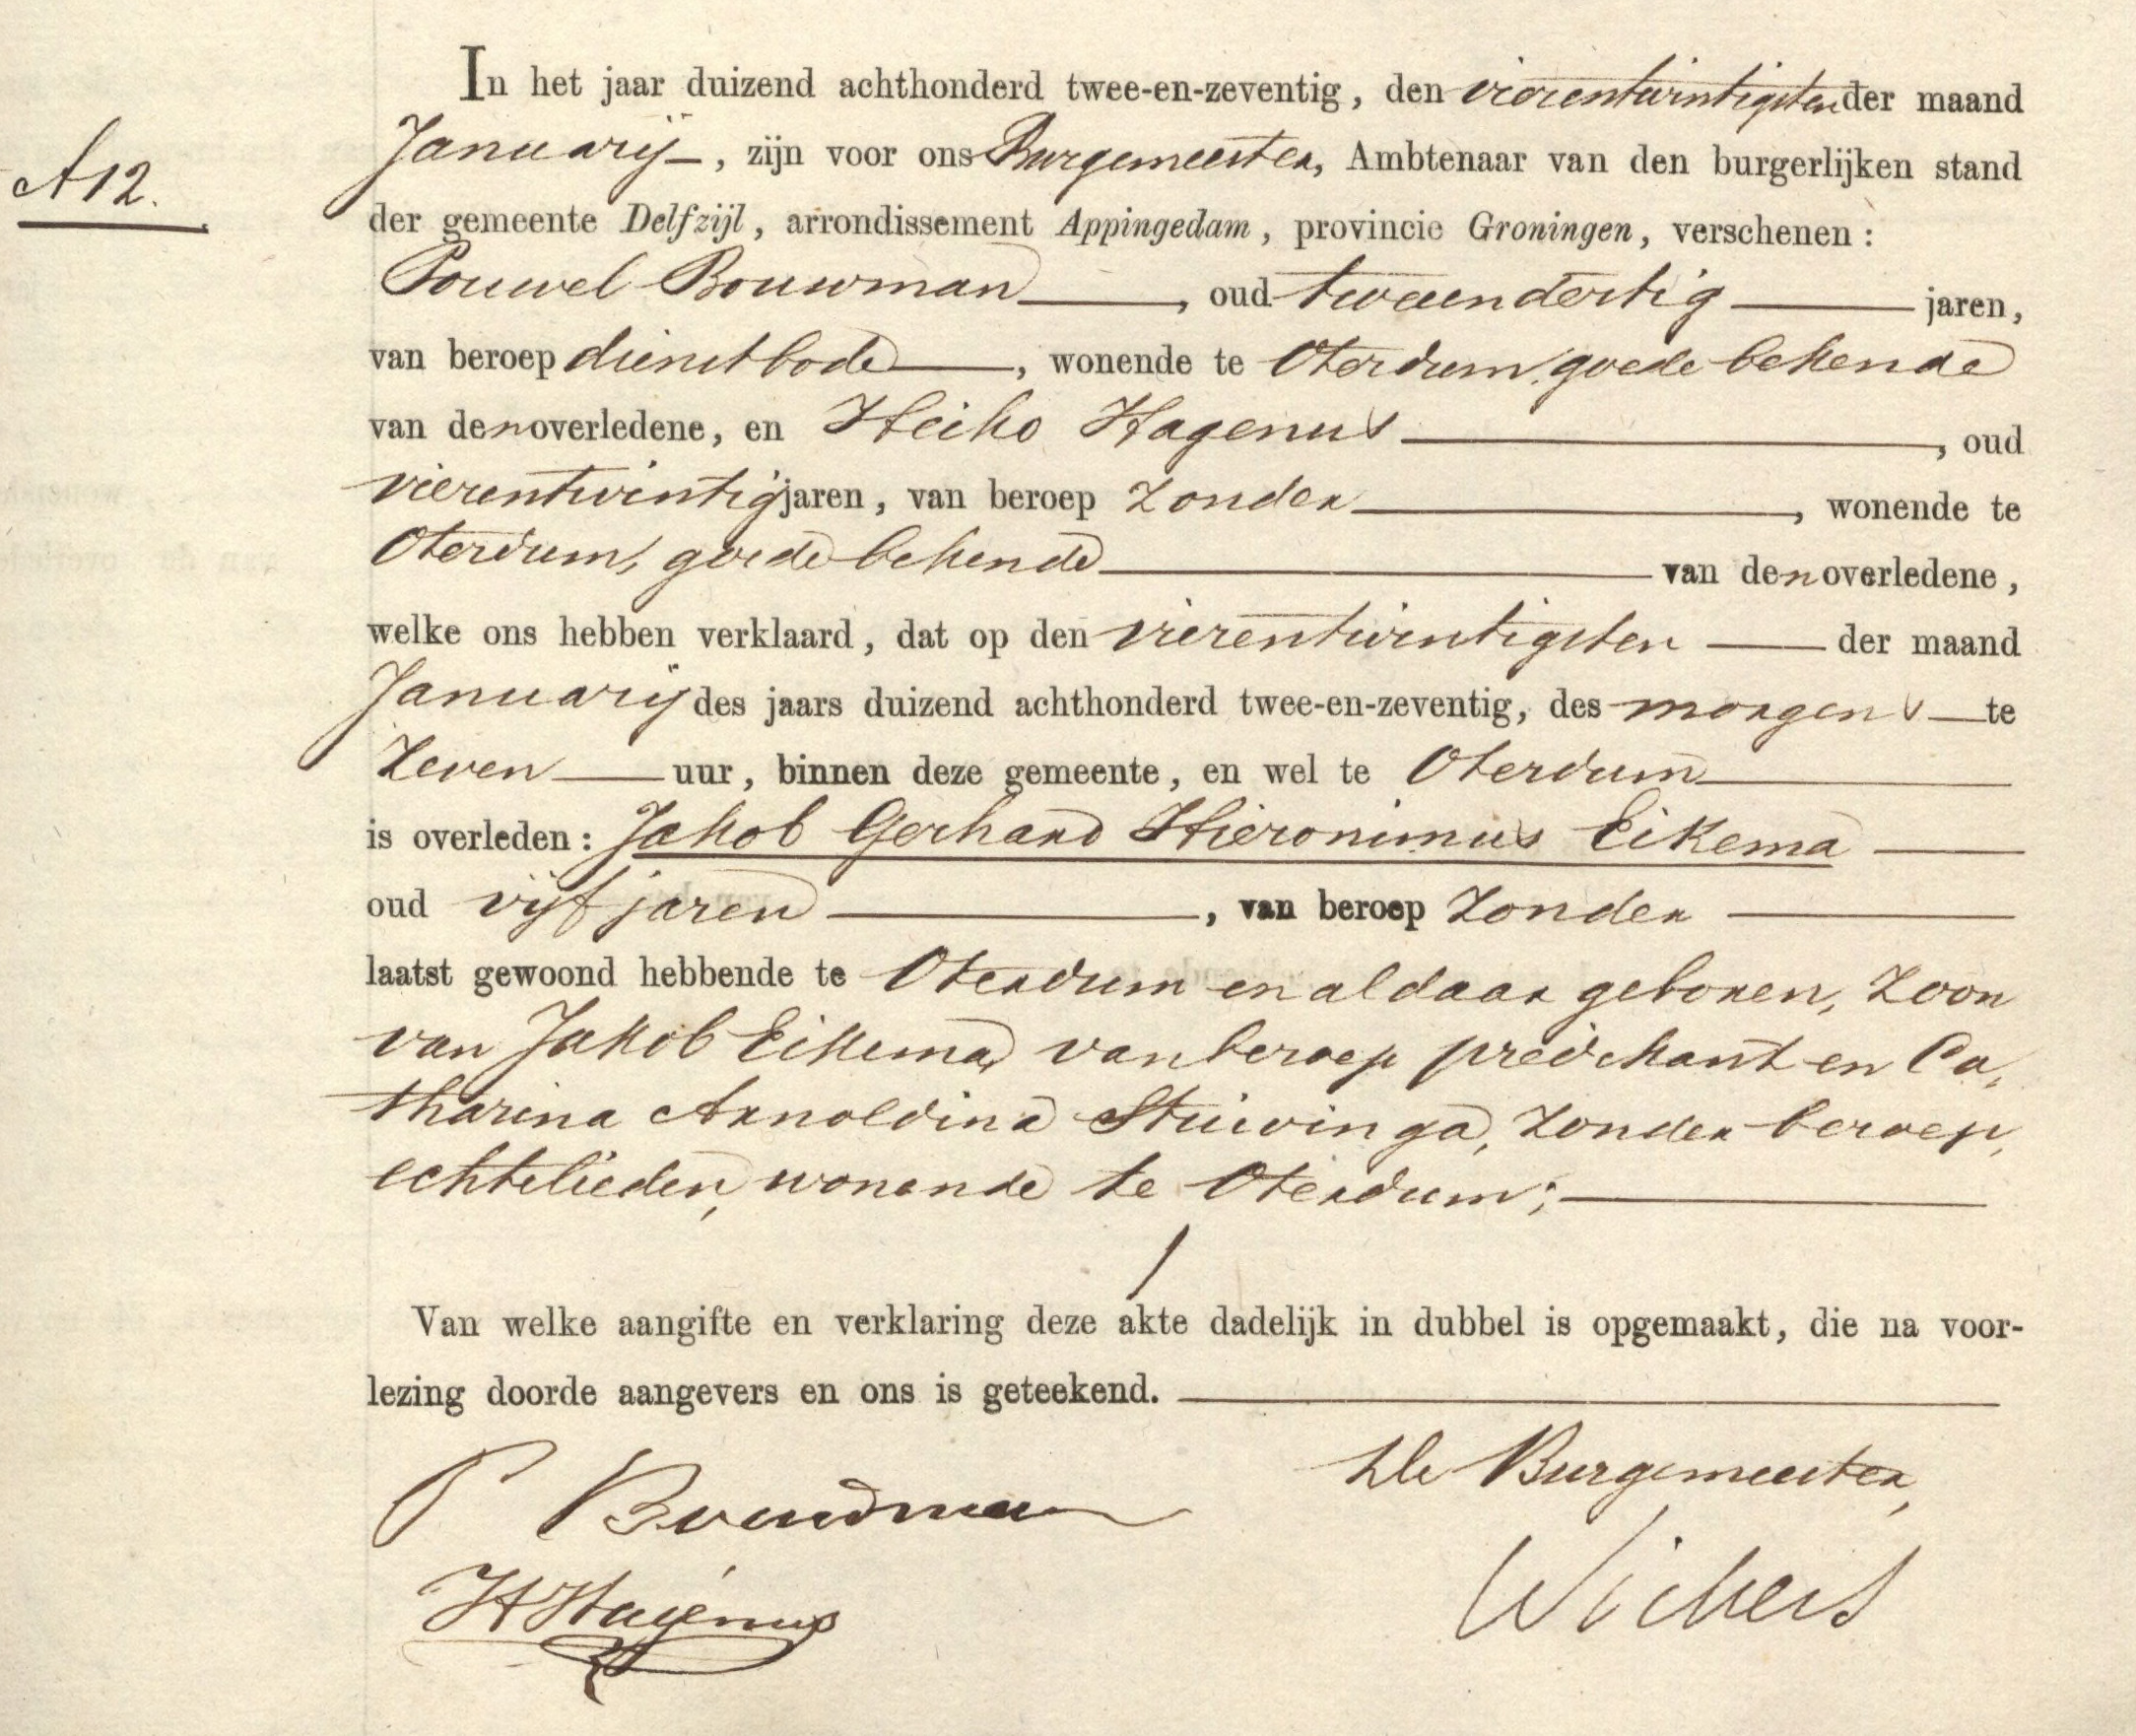 In het jaar duizend achthonderd twee-en-zeventig, den vierentwintigsten der maand
Januarij, zijn voor ons Burgemeester, Ambtenaar van den burgerlijken stand
A12.
der gemeente Delfzijl, arrondissement Appingedam, provincie Groningen, verschenen:
Pouwel Bouwman, oud tweeendertig jaren,
van beroep dienstbode, wonende te Oterdum, goede bekende
van den overledene, en Heiko Hagenus, oud
vierentwintig jaren, van beroep zonder, wonende te
Oterdum, goede bekende van den overledene,
welke ons hebben verklaard, dat op den vierentwintigsten der maand
Januarij des jaars duizend achthonderd twee-en-zeventig, des morgens te
zeven uur, binnen deze gemeente, en wel te Oterdum
is overleden: Jakob Gerhard Hieronimus Eikema
oud vijf jaren, van beroep zonder
laatst gewoond hebbende te Oterdum en aldaar geboren, zoon
van Jakob Eikema, van beroep predikant en Ca,
tharina Arnoldina Stuivinga, zonder beroep,
echtelieden, wonende te Oterdum;
Van welke aangifte en verklaring deze akte dadelijk in dubbel is opgemaakt, die na voor-
lezing doorde aangevers en ons is geteekend.
De Burgemeester,
P Bouwman
Wichers
H Hagenus